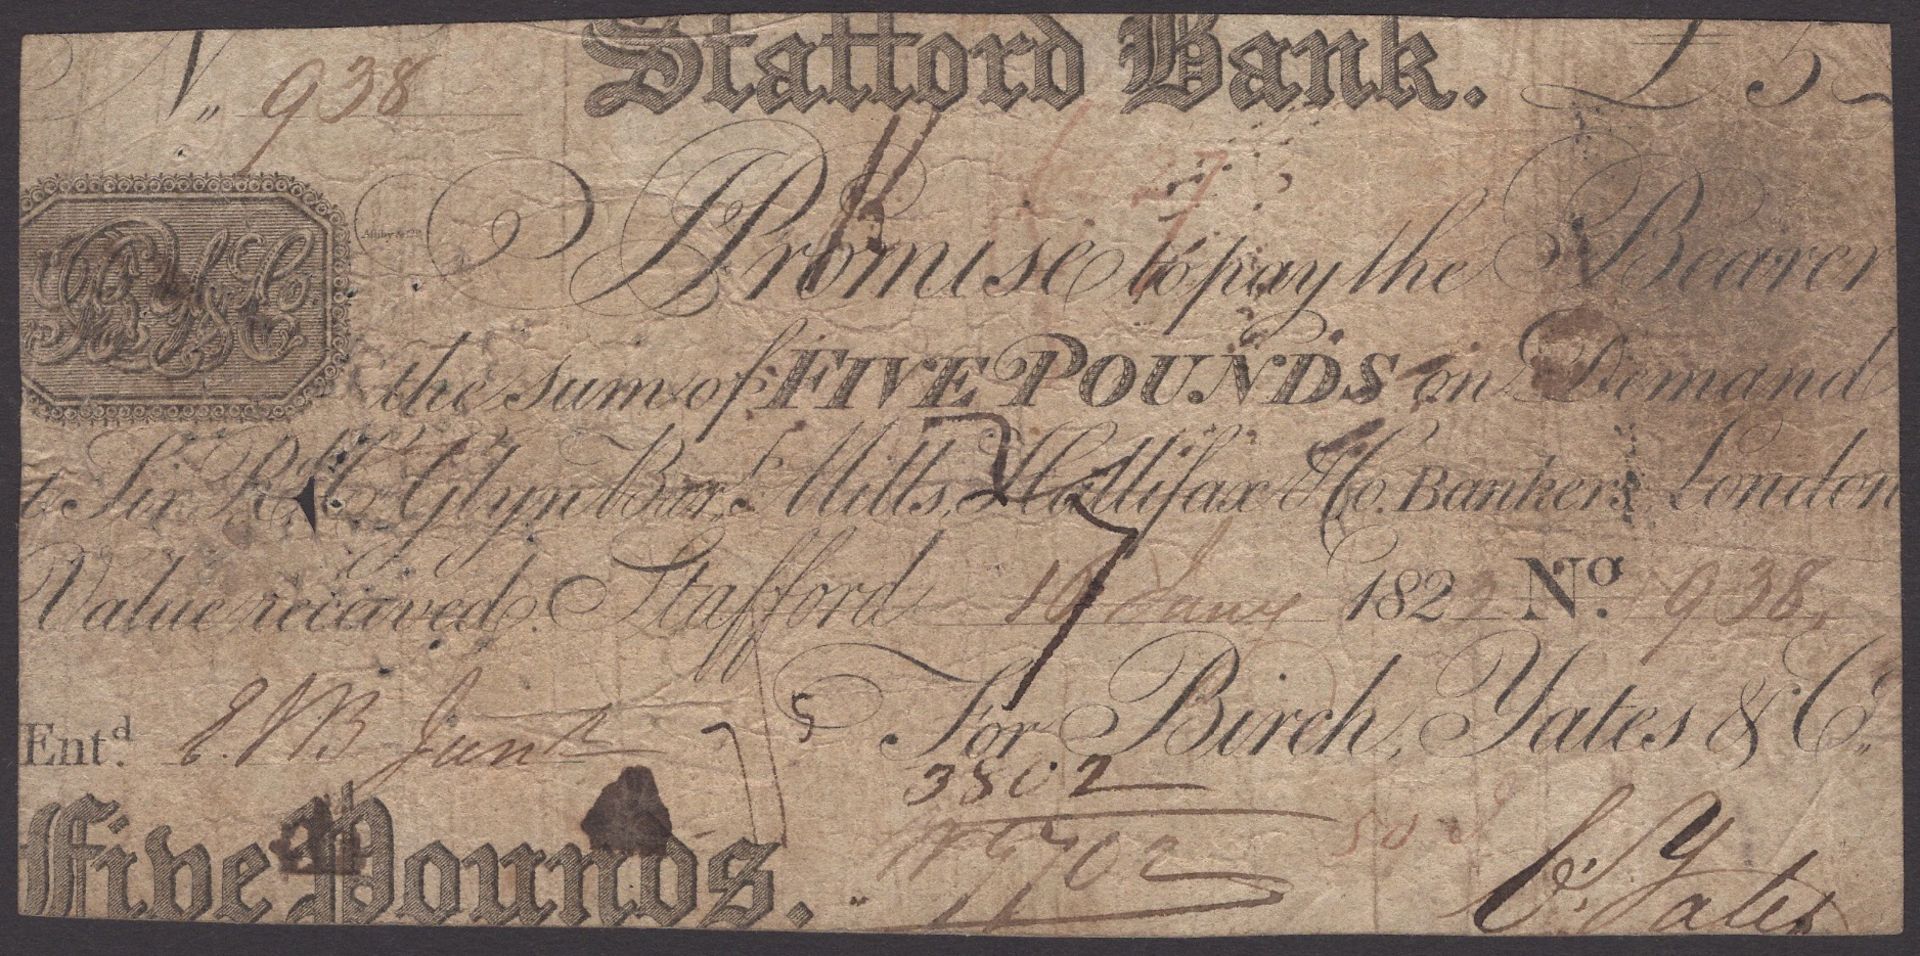 Nº 938 Stafford Bank. £5
I Promise to pay the Bearer
the sum of FIVE POUNDS on Demand
at Sir R. C. Glyn Bar.t Mills, Hallifax & Co. Bankers London
Value received. Stafford 10 Jany 1822 No. 938.
For Birch, Yates & Co.
Entd. Junr 5
3802
Five Pounds. 5702 50
E. Yates